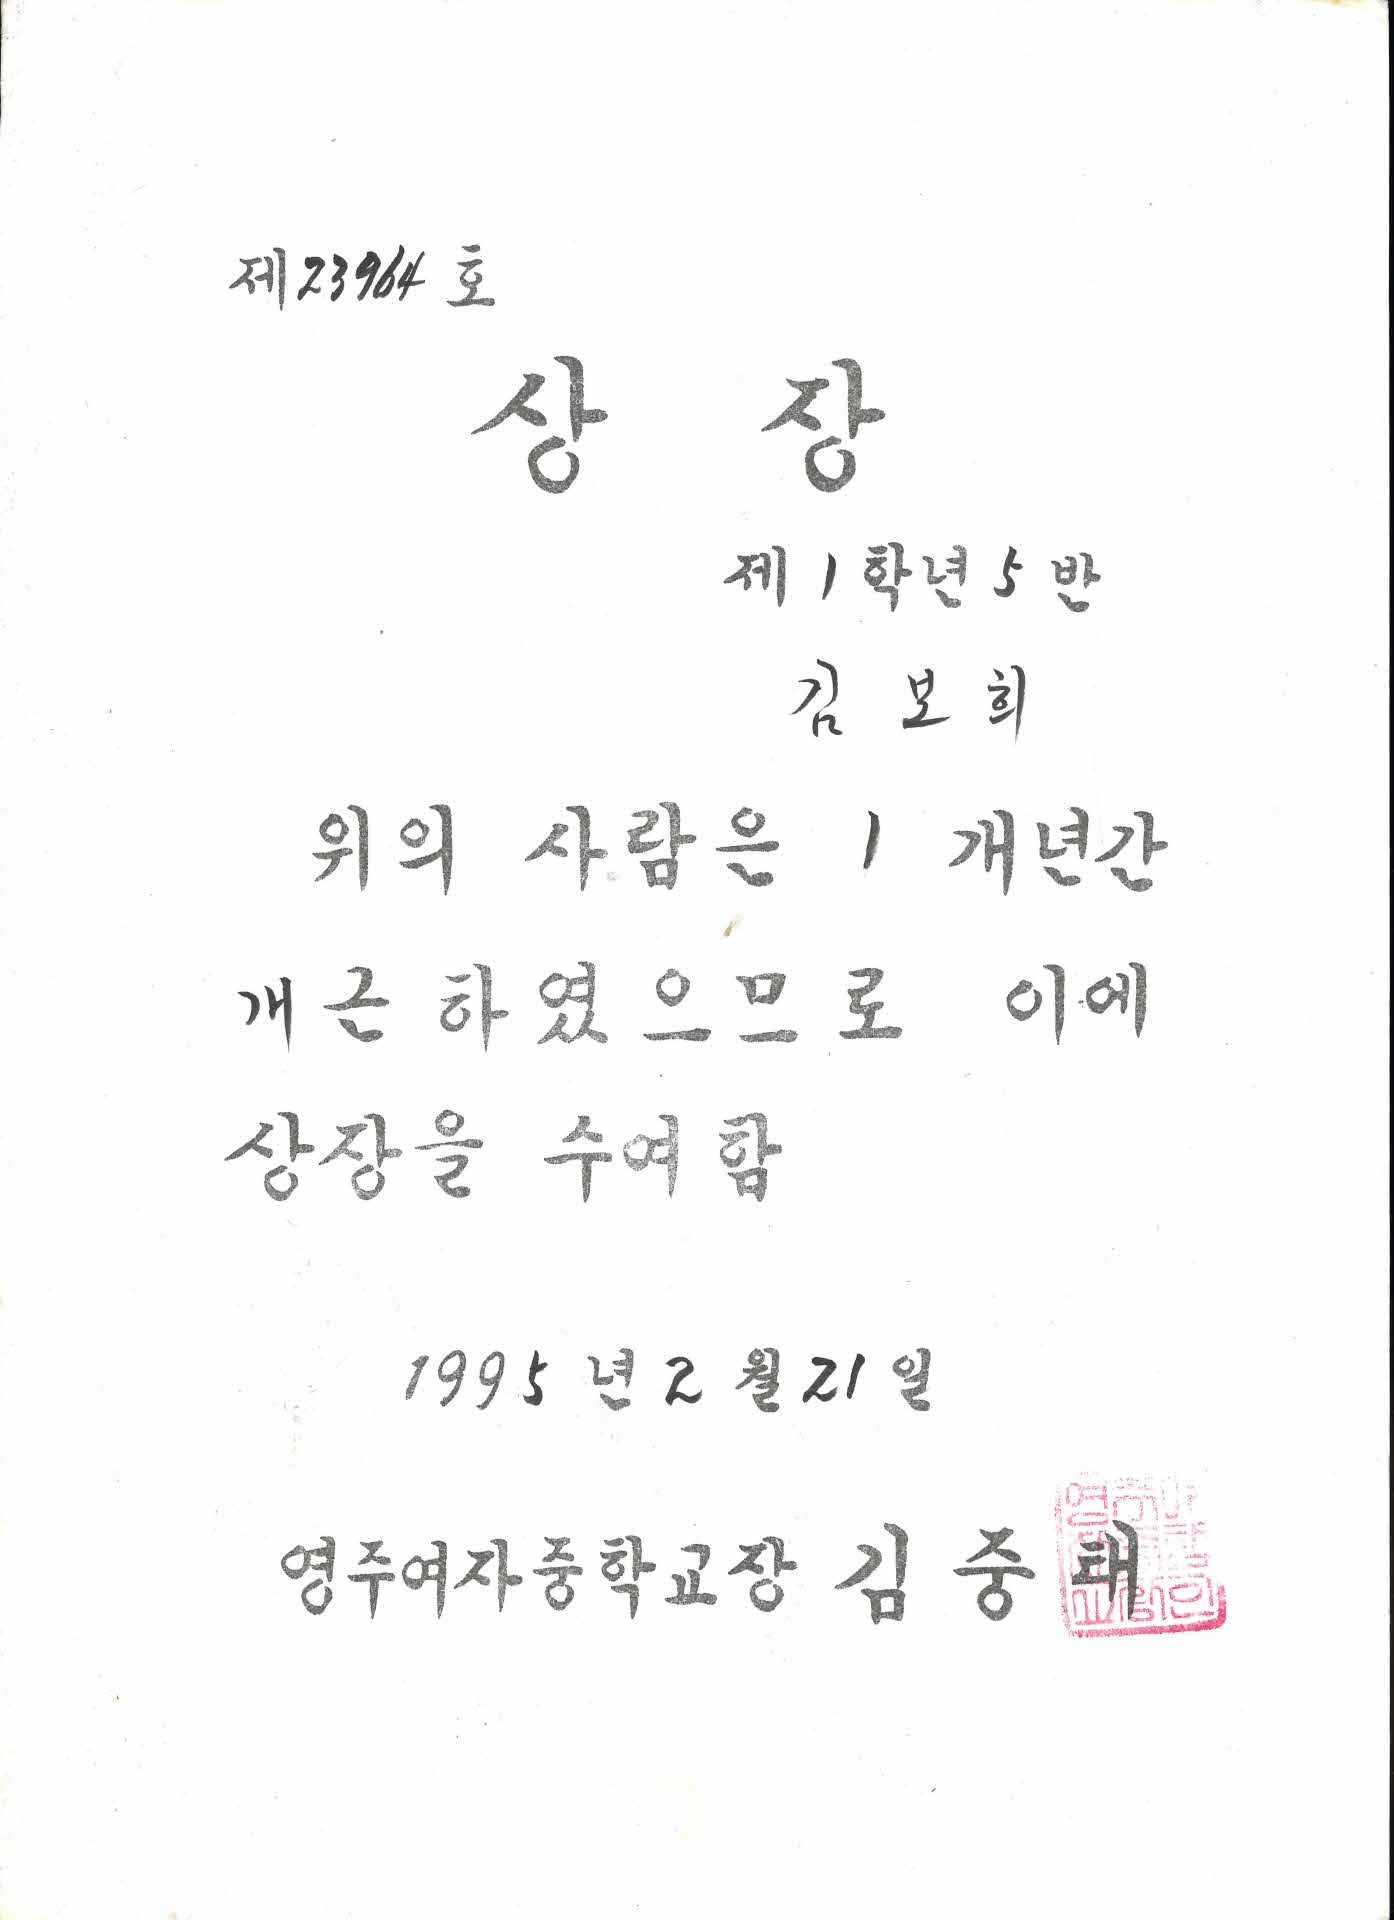 제23964호
상 장
제 1 학년 5 반
김 보 희
위의 사람은 1 개년간
개근 하였으므로 이에
상장을 수여함
1995 년 2 월 21 일
영주여자중학교장 김 중 태